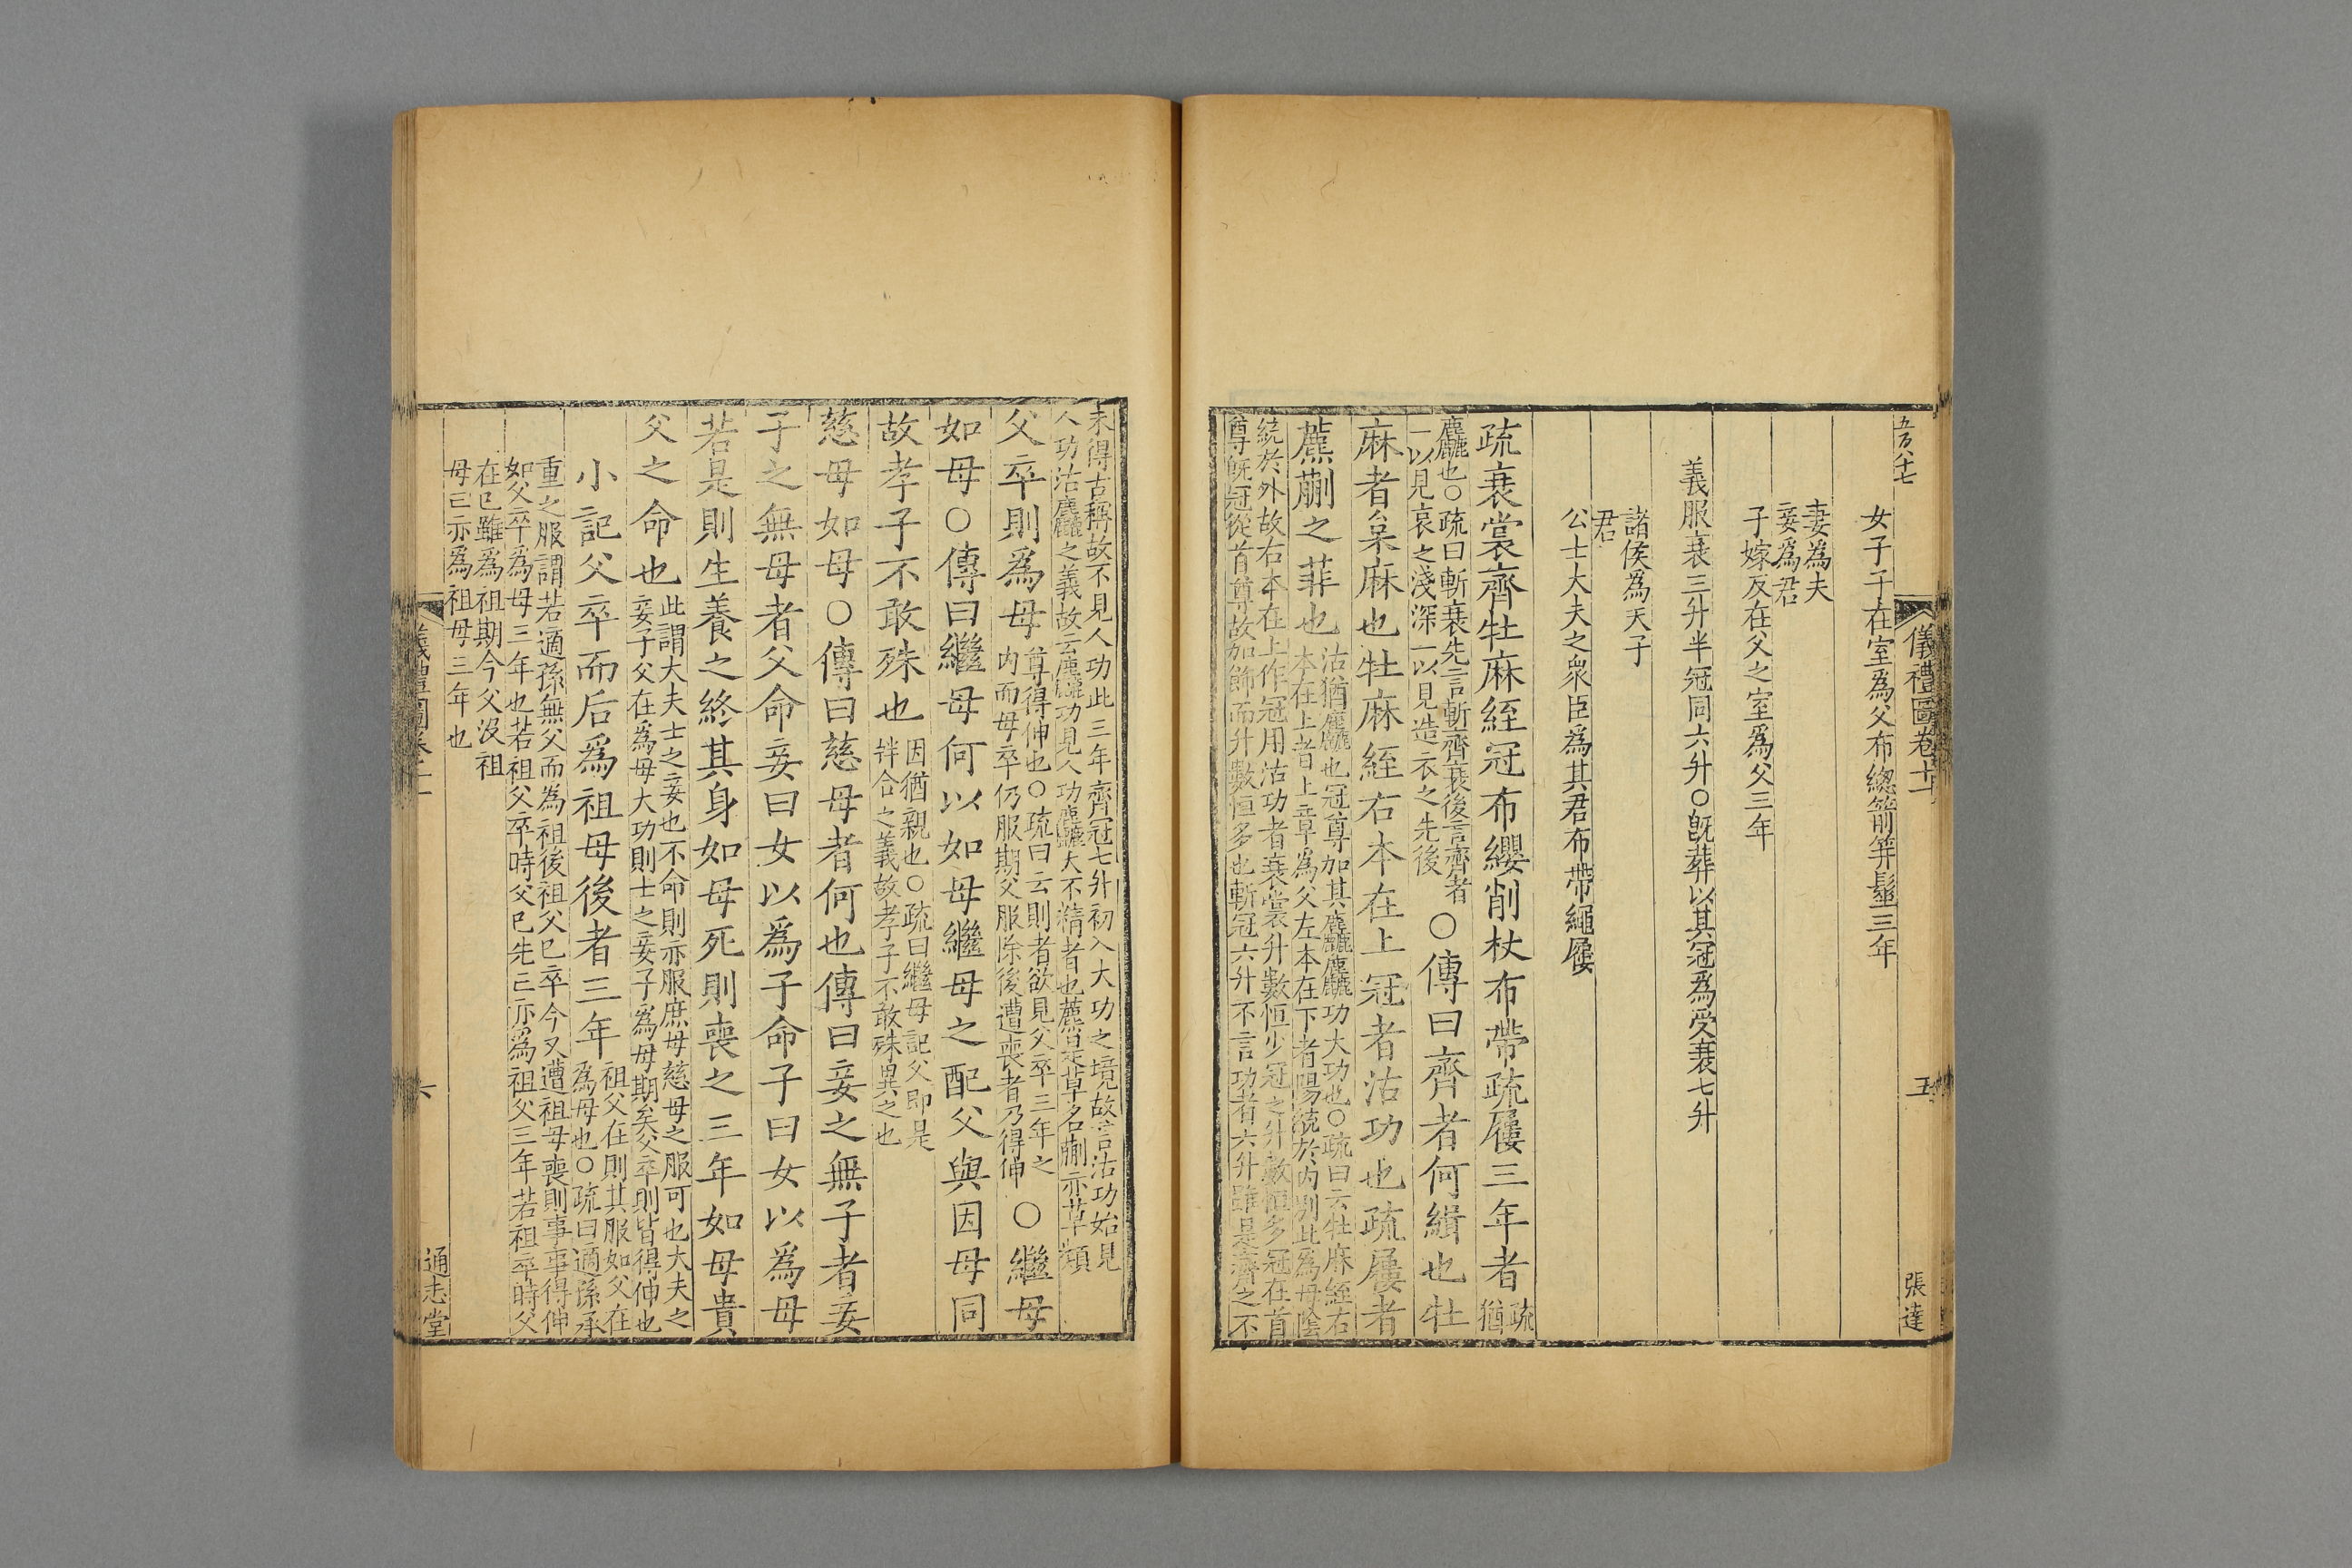 五百八十七
儀禮圖卷十一
五
張達
女子子在室爲父布總箭筓髽三年
妻爲夫
妾爲君
子嫁反在父之室爲父三年
義服衰三升半冠同六升○旣葬以其冠爲受衰七升
諸侯爲天子
君
公士大夫之衆臣爲其君布帶繩屨
疏衰裳齊牡麻絰冠布纓削杖布帶疏屨三年者
疏
猶
麤也○疏曰斬衰先言斬齊衰後言齊者
一以見哀之淺深一以見造衣之先後
○傳曰齊者何緝也牡
麻者枲麻也牡麻絰右本在上冠者沽功也疏屨者
藨蒯之菲也
沽猶麤也冠尊加其麤麤功大功也○疏曰云牡麻絰右
本在上者上章爲父左本在下者陽統於內則此爲母陰
統於外故右本在上作冠用沽功者衰裳升數恒少冠之升數恒多冠在首
尊旣冠從首尊故加飾而升數恒多也斬冠六升不言功者六升雖是齊之不
末得古稱故不見人功此三年齊冠七升初入大功之境故言沽功始見
人功沽麤之義故云麤功見人功麤大不精者也藨是草名蒯亦草類
父卒則爲母
尊得伸也○疏曰云則者欲見父卒三年之
內而母卒仍服期父服除後遭喪者乃得伸
○繼母
如母○傳曰繼母何以如母繼母之配父與因母同
故孝子不敢殊也
因猶親也○疏曰繼母記父即是
牉合之義故孝子不敢殊異之也
慈母如母○傳曰慈母者何也傳曰妾之無子者妾
子之無母者父命妾曰女以爲子命子曰女以爲母
若是則生養之終其身如母死則喪之三年如母貴
父之命也
此謂大夫士之妾也不命則亦服庶母慈母之服可也大夫之
妾子父在爲母大功則士之妾子爲母期矣父卒則皆得伸也
小記父卒而后爲祖母後者三年
祖父在則其服如父在
爲母也○疏曰適孫承
重之服謂若適孫無父而爲祖後祖父已卒今又遭祖母喪則事事得伸
如父卒爲母三年也若祖父卒時父已先亡亦爲祖父三年若祖卒時父
在已雖爲祖期今父沒祖
母亡亦爲祖母三年也
儀禮圖卷十一
六
通志堂